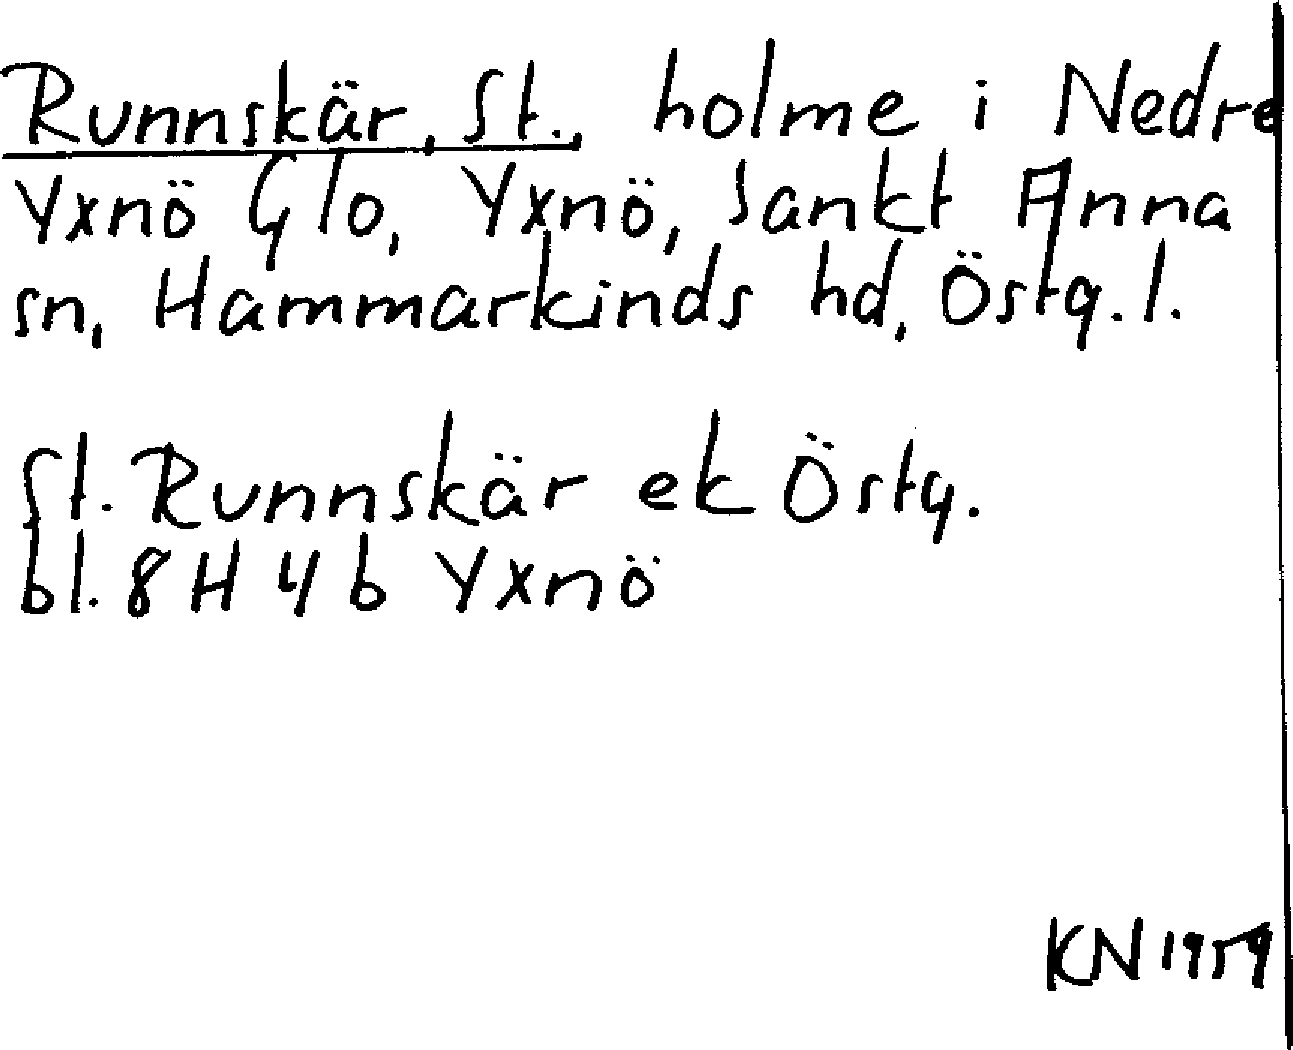 Runnskär, St., holme i Nedre
Yxnö Glo, Yxnö, Sankt Anna
sn, Hammarkinds hd, Östg. l.
St. Runnskär ek Östg.
bl. 8 H 4 b Yxnö
KN 1959